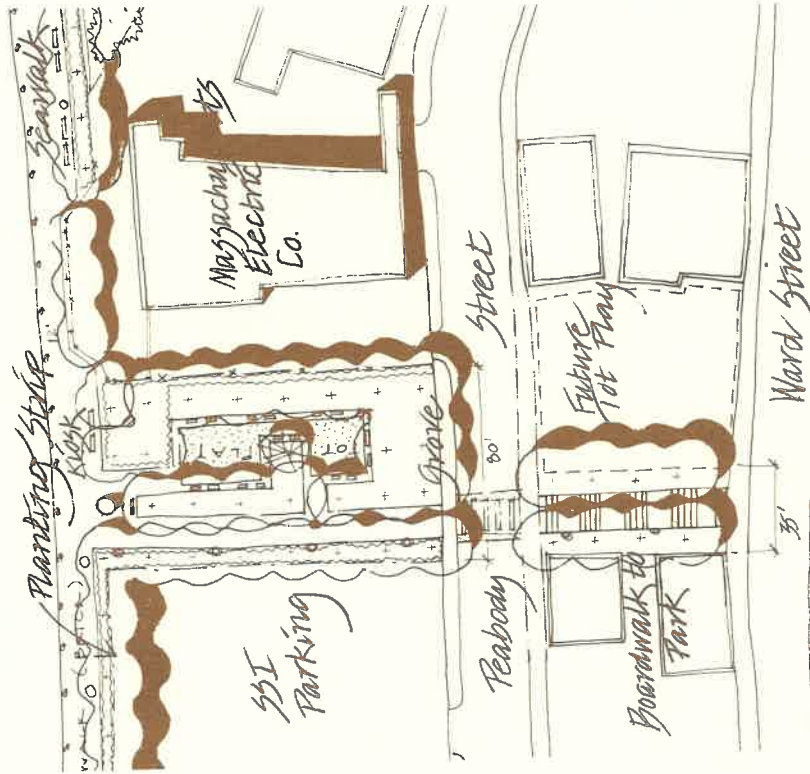 Seawalk
Planting Strip
Kiosk
Massachu
setts
Electric
Co.
TOT PLAY
Grove
80'
Street
Peabody
SSI
Parking
Future
Tot Play
Boardwalk to
Park
Ward Street
35'